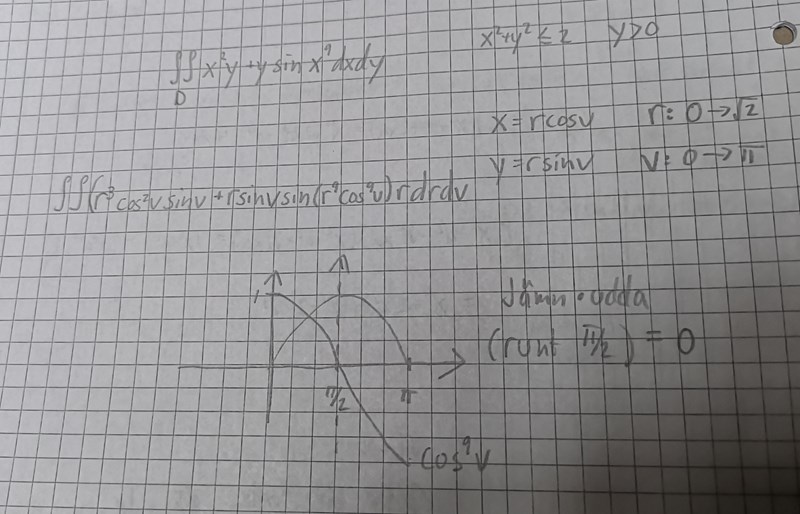 ∬ x²y + y sin x⁹ dxdy
D
x²+y² ≤ 2 y>0
x = rcosv r: 0 → √2
y = rsinv v: 0 → π
∬(r³cos²v sinv + rsinv sin(r⁹cos⁹v) rdrdv
1
Jämn · udda
(runt π/2) = 0
π/2 π
cos⁹v